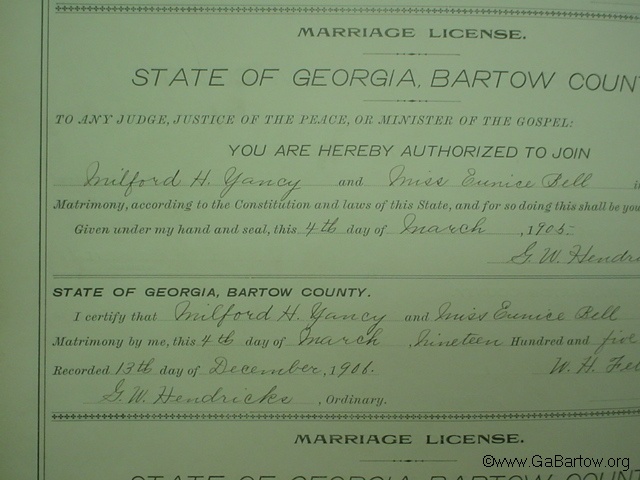 MARRIAGE LICENSE.
STATE OF GEORGIA, BARTOW COUNT
TO ANY JUDGE, JUSTICE OF THE PEACE, OR MINISTER OF THE GOSPEL:
YOU ARE HEREBY AUTHORIZED TO JOIN
Milford H. Yancy and Miss Eunice Bell
Matrimony, according to the Constitution and laws of this State, and for so doing this shall be you
Given under my hand and seal, this 4th day of March, 1905.
G. W. Hendri
STATE OF GEORGIA, BARTOW COUNTY.
I certify that Milford H. Yancy and Miss Eunice Bell
Matrimony by me, this 4th day of March, Nineteen Hundred and five
Recorded 13th day of December, 1906. W. H.
G. W. Hendricks, Ordinary.
MARRIAGE LICENSE.
STATE OF GEORGIA, BARTOW COUNT
©www.GaBartow.org